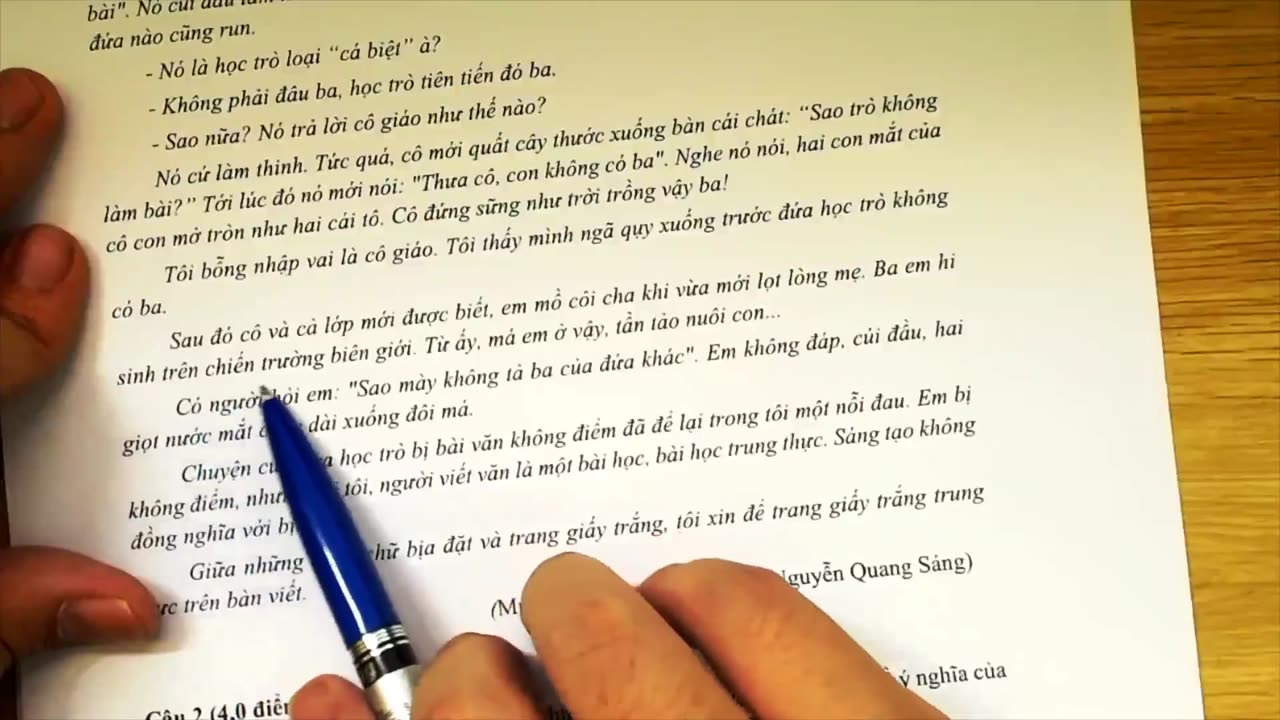 bài". Nó cúi đầu làm
đứa nào cũng run.
- Nó là học trò loại “cá biệt” à?
- Không phải đâu ba, học trò tiên tiến đó ba.
- Sao nữa? Nó trả lời cô giáo như thế nào?
Nó cứ làm thinh. Tức quá, cô mới quất cây thước xuống bàn cái chát: “Sao trò không
làm bài?” Tới lúc đó nó mới nói: "Thưa cô, con không có ba". Nghe nó nói, hai con mắt của
cô con mở tròn như hai cái tô. Cô đứng sững như trời trồng vậy ba!
Tôi bỗng nhập vai là cô giáo. Tôi thấy mình ngã quỵ xuống trước đứa học trò không
có ba.
Sau đó cô và cả lớp mới được biết, em mồ côi cha khi vừa mới lọt lòng mẹ. Ba em hi
sinh trên chiến trường biên giới. Từ ấy, má em ở vậy, tần tảo nuôi con...
Có người hỏi em: "Sao mày không tả ba của đứa khác". Em không đáp, cúi đầu, hai
giọt nước mắt dài xuống đôi má.
Chuyện học trò bị bài văn không điểm đã để lại trong tôi một nỗi đau. Em bị
không điểm, tôi, người viết văn là một bài học, bài học trung thực. Sáng tạo không
đồng nghĩa với
Giữa những chữ bịa đặt và trang giấy trắng, tôi xin để trang giấy trắng trung
trên bàn viết.
Nguyễn Quang Sáng)
Câu 2 (4,0 ý nghĩa của